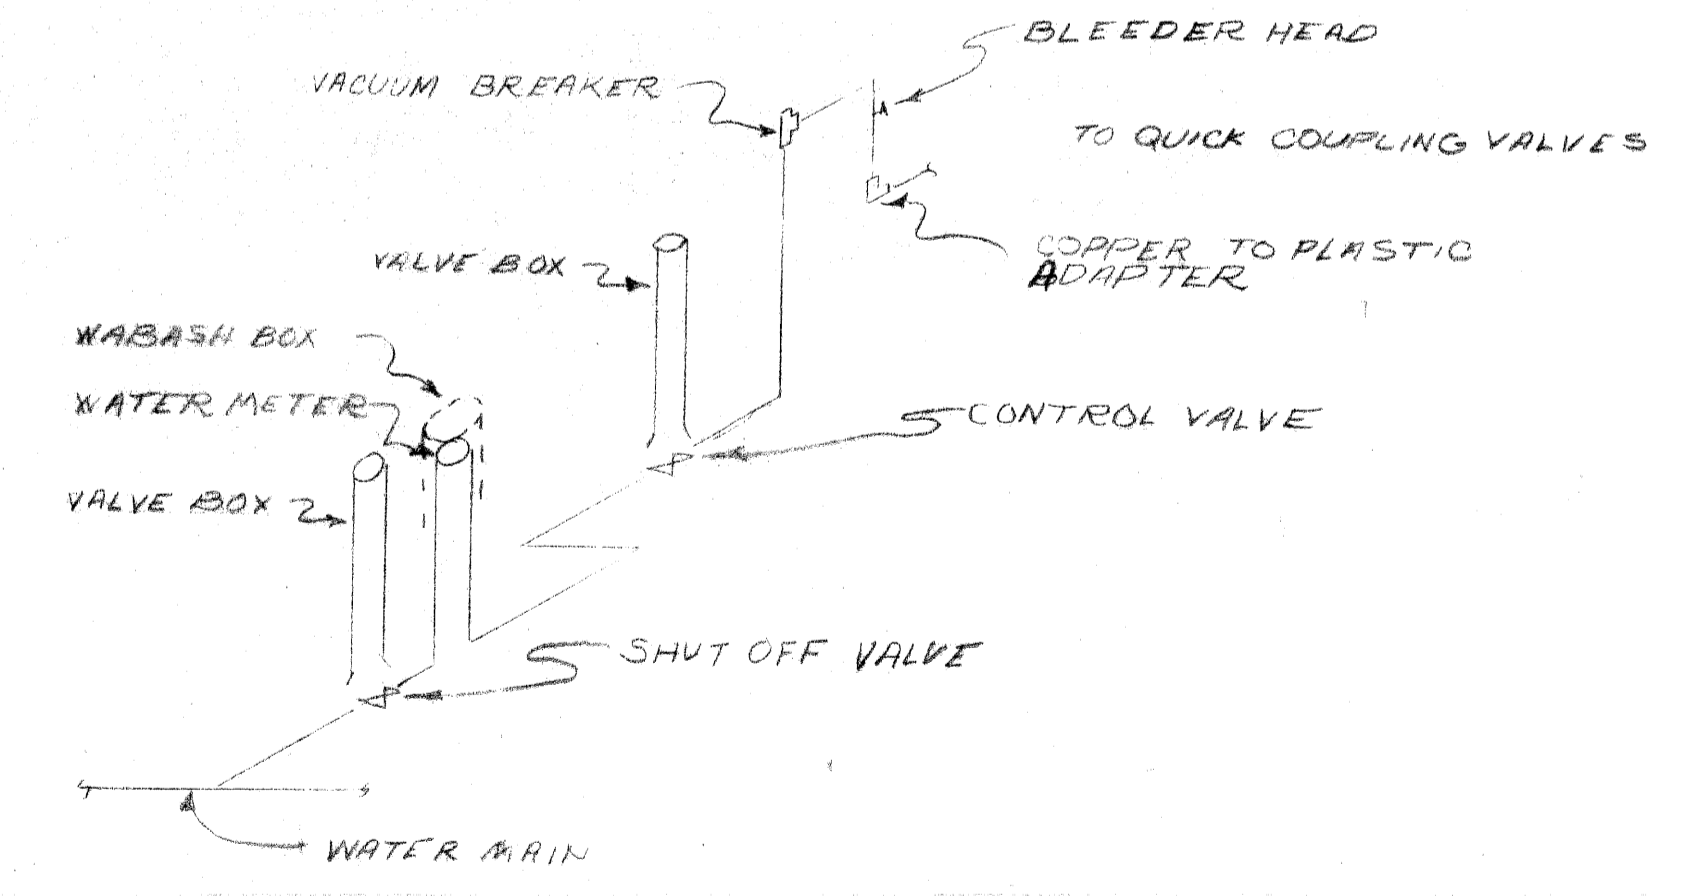 BLEEDER HEAD
VACUUM BREAKER
TO QUICK COUPLING VALVES
VALVE BOX
COPPER TO PLASTIC
ADAPTER
WABASH BOX
WATER METER
CONTROL VALVE
VALVE BOX
SHUT OFF VALVE
WATER MAIN